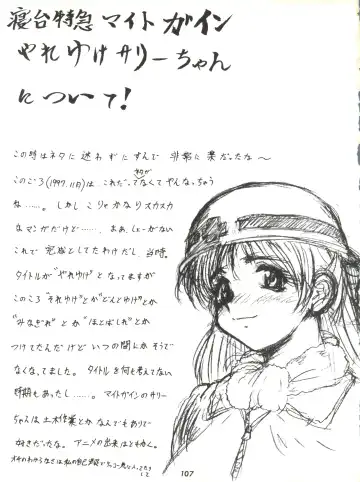 寝台特急マイトガイン
やれゆけサリーちゃん
について!
この時はネタに迷わずにすんで 非常に楽だったな〜
このごろ(1997.11月)は これだってなくてやんなっちゃう
ね……。しかし こりゃかなりスカスカ
なマンガだけど…… まあ、しょーがない
これで 完成としてたわけだし、当時
タイトルが"やれゆけ"と なってますが
このころ "それゆけ"とか"どんとゆけ"とか
"みなぎれ"とか "ほとばしれ"とか
つけてたんだけど いつの間にかそうで
なくなってました。タイトルを何も考えてない
時期もあったし……。マイトガインのサリー
ちゃんは土木作業とか なんでもありで
好きだったな。アニメの出来はともかく。
107